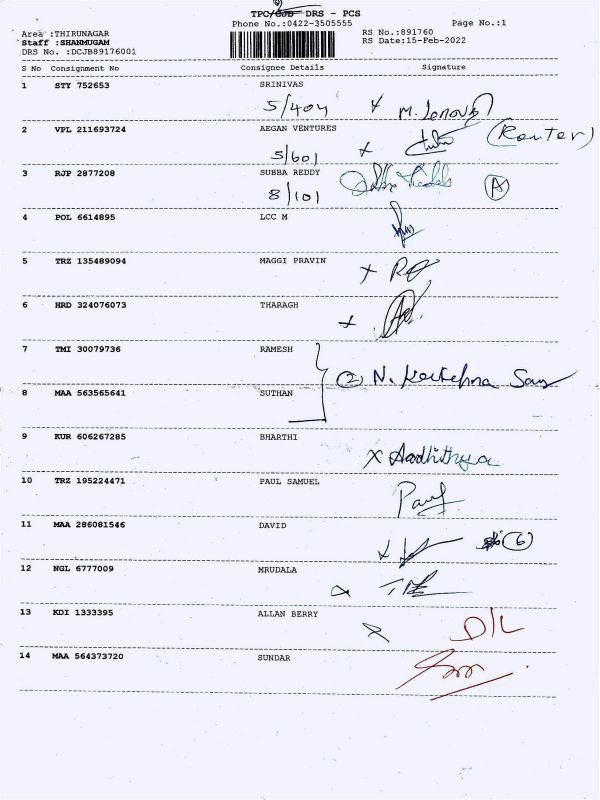 TPC/CJB DRS - PCS
Phone No.:0422-3505555
Page No.:1
Area :THIRUNAGAR
Staff :SHANMUGAM
DRS No. :DCJB89176001
RS No.:891760
RS Date:15-Feb-2022
S No Consignment No Consignee Details Signature
1 STY 752653 SRINIVAS
5/404 x M.
2 VPL 211693724 AEGAN VENTURES
5/601 x
3 RJP 2877208 SUBBA REDDY
8/101 A
4 POL 6614895 LCC M
5 TRZ 135489094 MAGGI PRAVIN
x
6 HRD 324076073 THARAGH
x
7 TMI 30079736 RAMESH
(2) N.
8 MAA 563565641 SUTHAN
9 KUR 606267285 BHARTHI
x Aadhithya
10 TRZ 195224471 PAUL SAMUEL
Paul
11 MAA 286081546 DAVID
x (6)
12 NGL 6777009 MRUDALA
13 KDI 1333395 ALLAN BERRY
D/L
14 MAA 564373720 SUNDAR